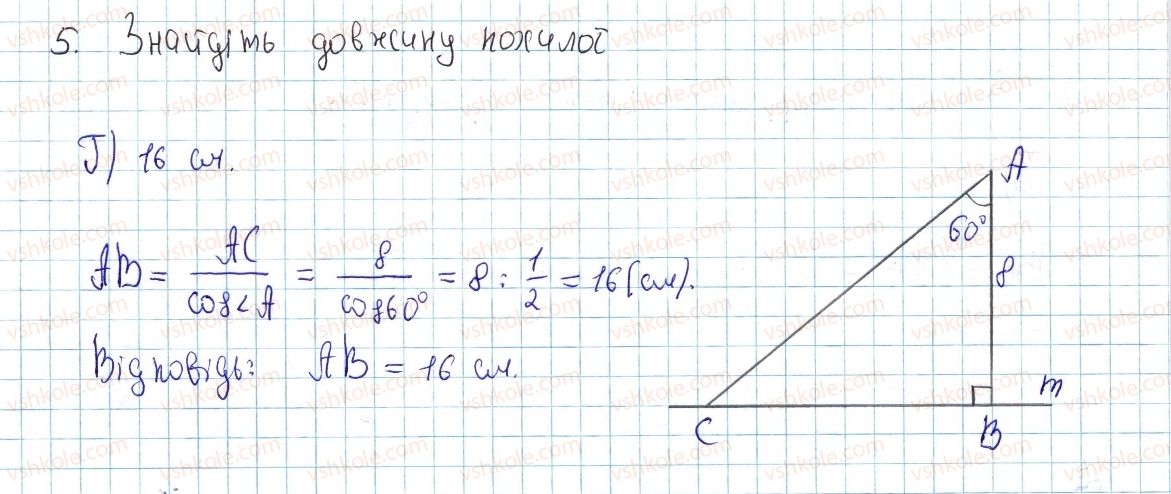 5. Знайдіть довжину похилої
Г) 16 см.
AB = AC / cos∠A = 8 / cos60° = 8 : 1/2 = 16 (см).
Відповідь: AB = 16 см.
A
60°
8
m
C
B